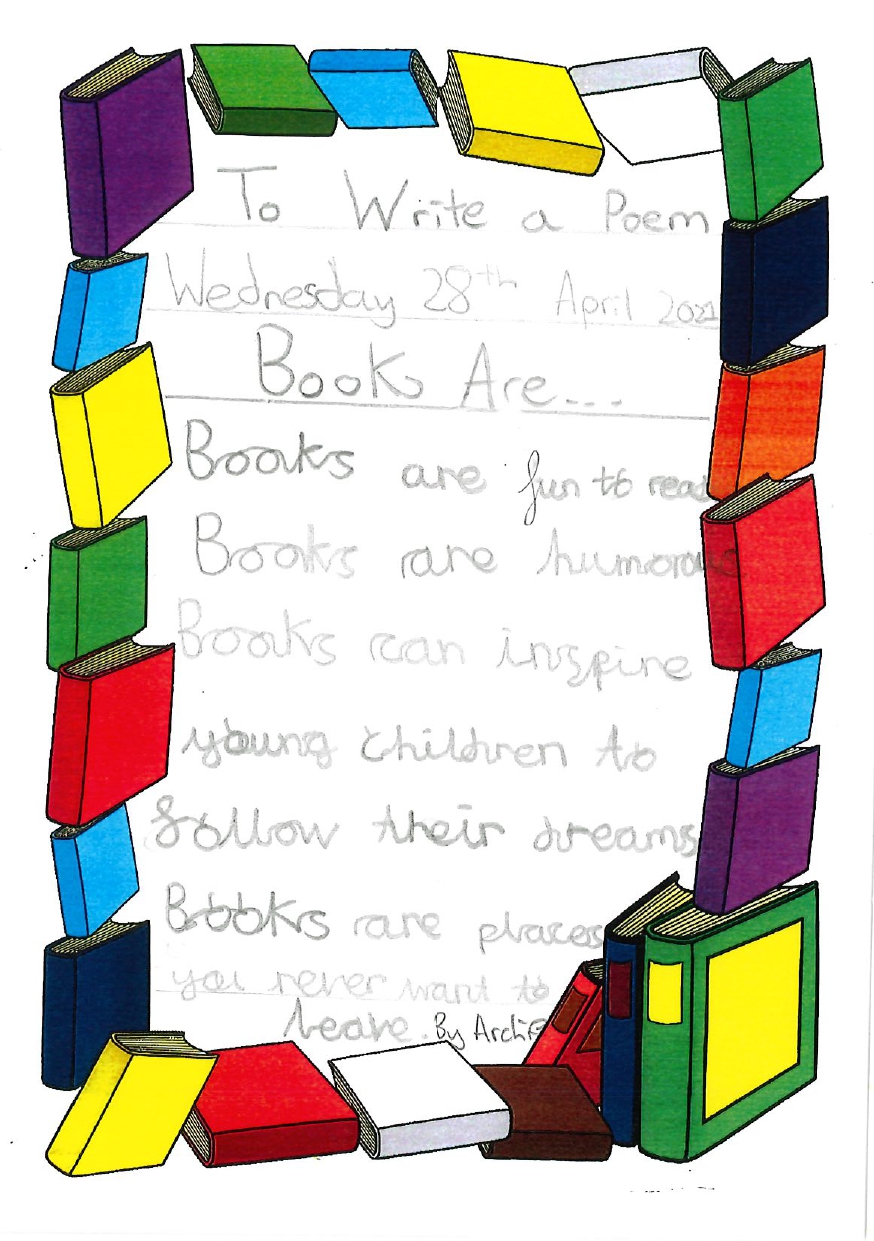 To Write a Poem
Wednesday 28th April 2021
Book Are...
Books are fun to read
Books are
Books can inspire
young children to
follow their dreams
Books are places
you never want to
leave. By Archie